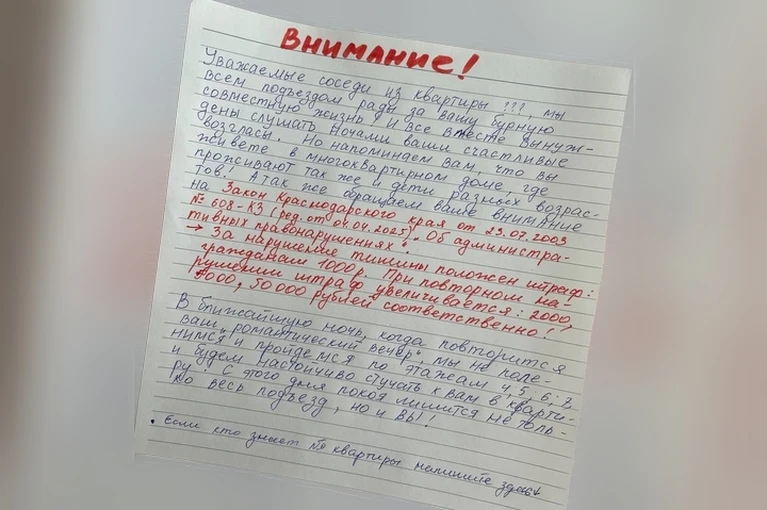 ВНИМАНИЕ!
Уважаемые соседи из квартиры ???, мы
всем подъездом рады за вашу бурную
совместную жизнь! И все вместе вынуж-
дены слушать ночами ваши счастливые
возгласы. Но напоминаем вам, что вы
живете в многоквартирном доме, где
проживают так же и дети разных возрас-
тов! А так же обращаем ваше внимание
на Закон Краснодарского края от 23.07.2003
№ 608-КЗ (ред. от 04.04.2025) „Об администра-
тивных правонарушениях".
→ За нарушение тишины положен штраф:
гражданам 1000р. При повторном на-
рушении штраф увеличивается: 2000,
4000, 50 000 рублей соответственно!
В ближайшую ночь, когда повторится
ваш „романтический вечер", мы не поле-
нимся и пройдемся по этажам 4, 5, 6, 7
и будем настойчиво стучать к вам в кварти-
ру. С этого дня покоя лишится не толь-
ко весь подъезд, но и Вы!
• Если кто знает № квартиры напишите здесь↓